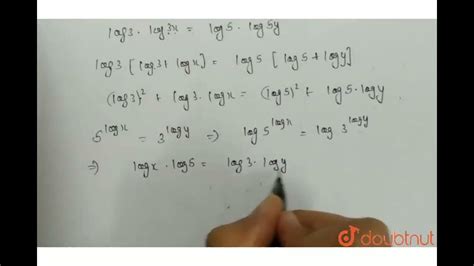 log3 · log3x = log5 · log5y
log3 [log3 + logx] = log5 [log5 + logy]
(log3)² + log3 · logx = (log5)² + log5 · logy
5^logx = 3^logy ⇒ log5^logx = log3^logy
⇒ logx · log5 = log3 · logy
doubtnut